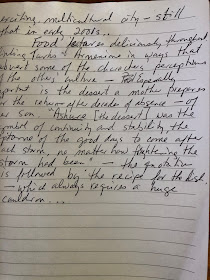 exciting, multicultural city – still
that in early 2000s..
Food features deliciously throughout
in ways that
subvert some of the characters' perceptions
of the other culture –
important is the dessert a mother prepares
for the return after decades of absence – of
her son. "Ashure [the dessert] was the
symbol of continuity and stability, the
epitome of the good days to come after
each storm, no matter how frightening the
storm had been" – the quotation
is followed by the recipe for the dish
– which always requires a huge
cauldron...